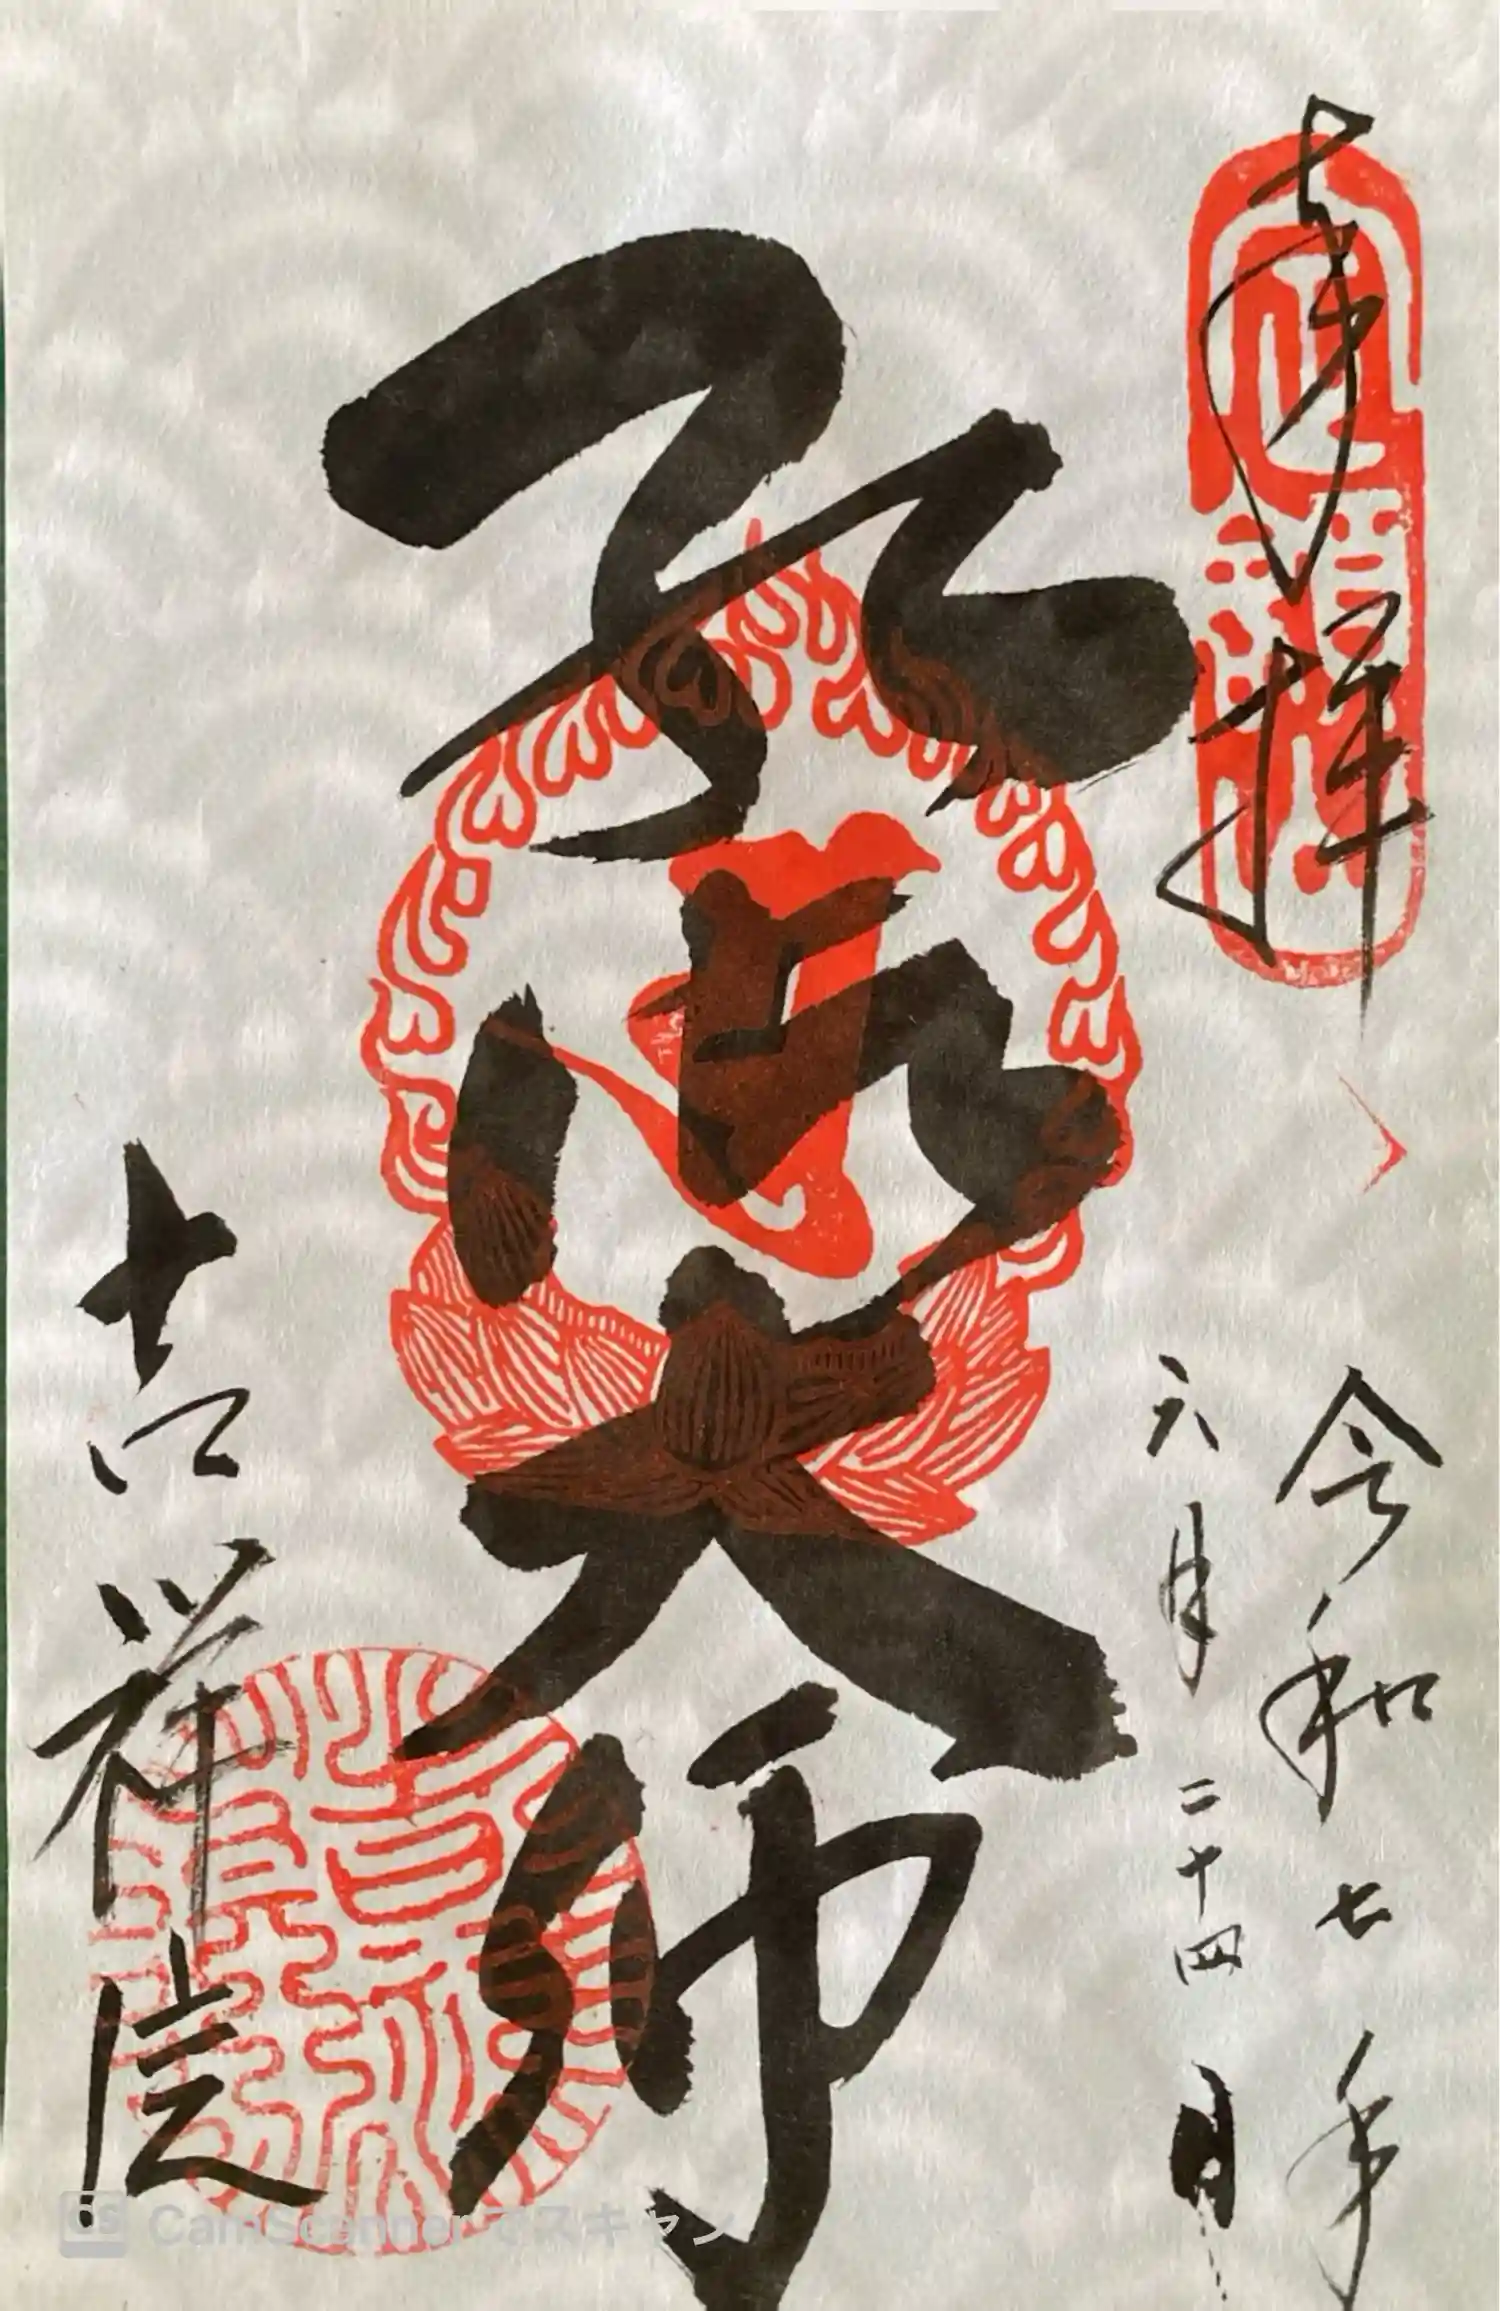 奉拝
令和七年
六月二十四日
弘法大師
吉祥院
CamScannerでスキャン